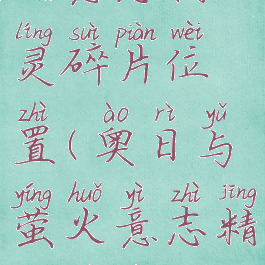 líng suì piàn wèi
灵碎片位
zhì ào rì yǔ
置(奥日与
yíng huǒ yì zhì jīng
萤火意志精